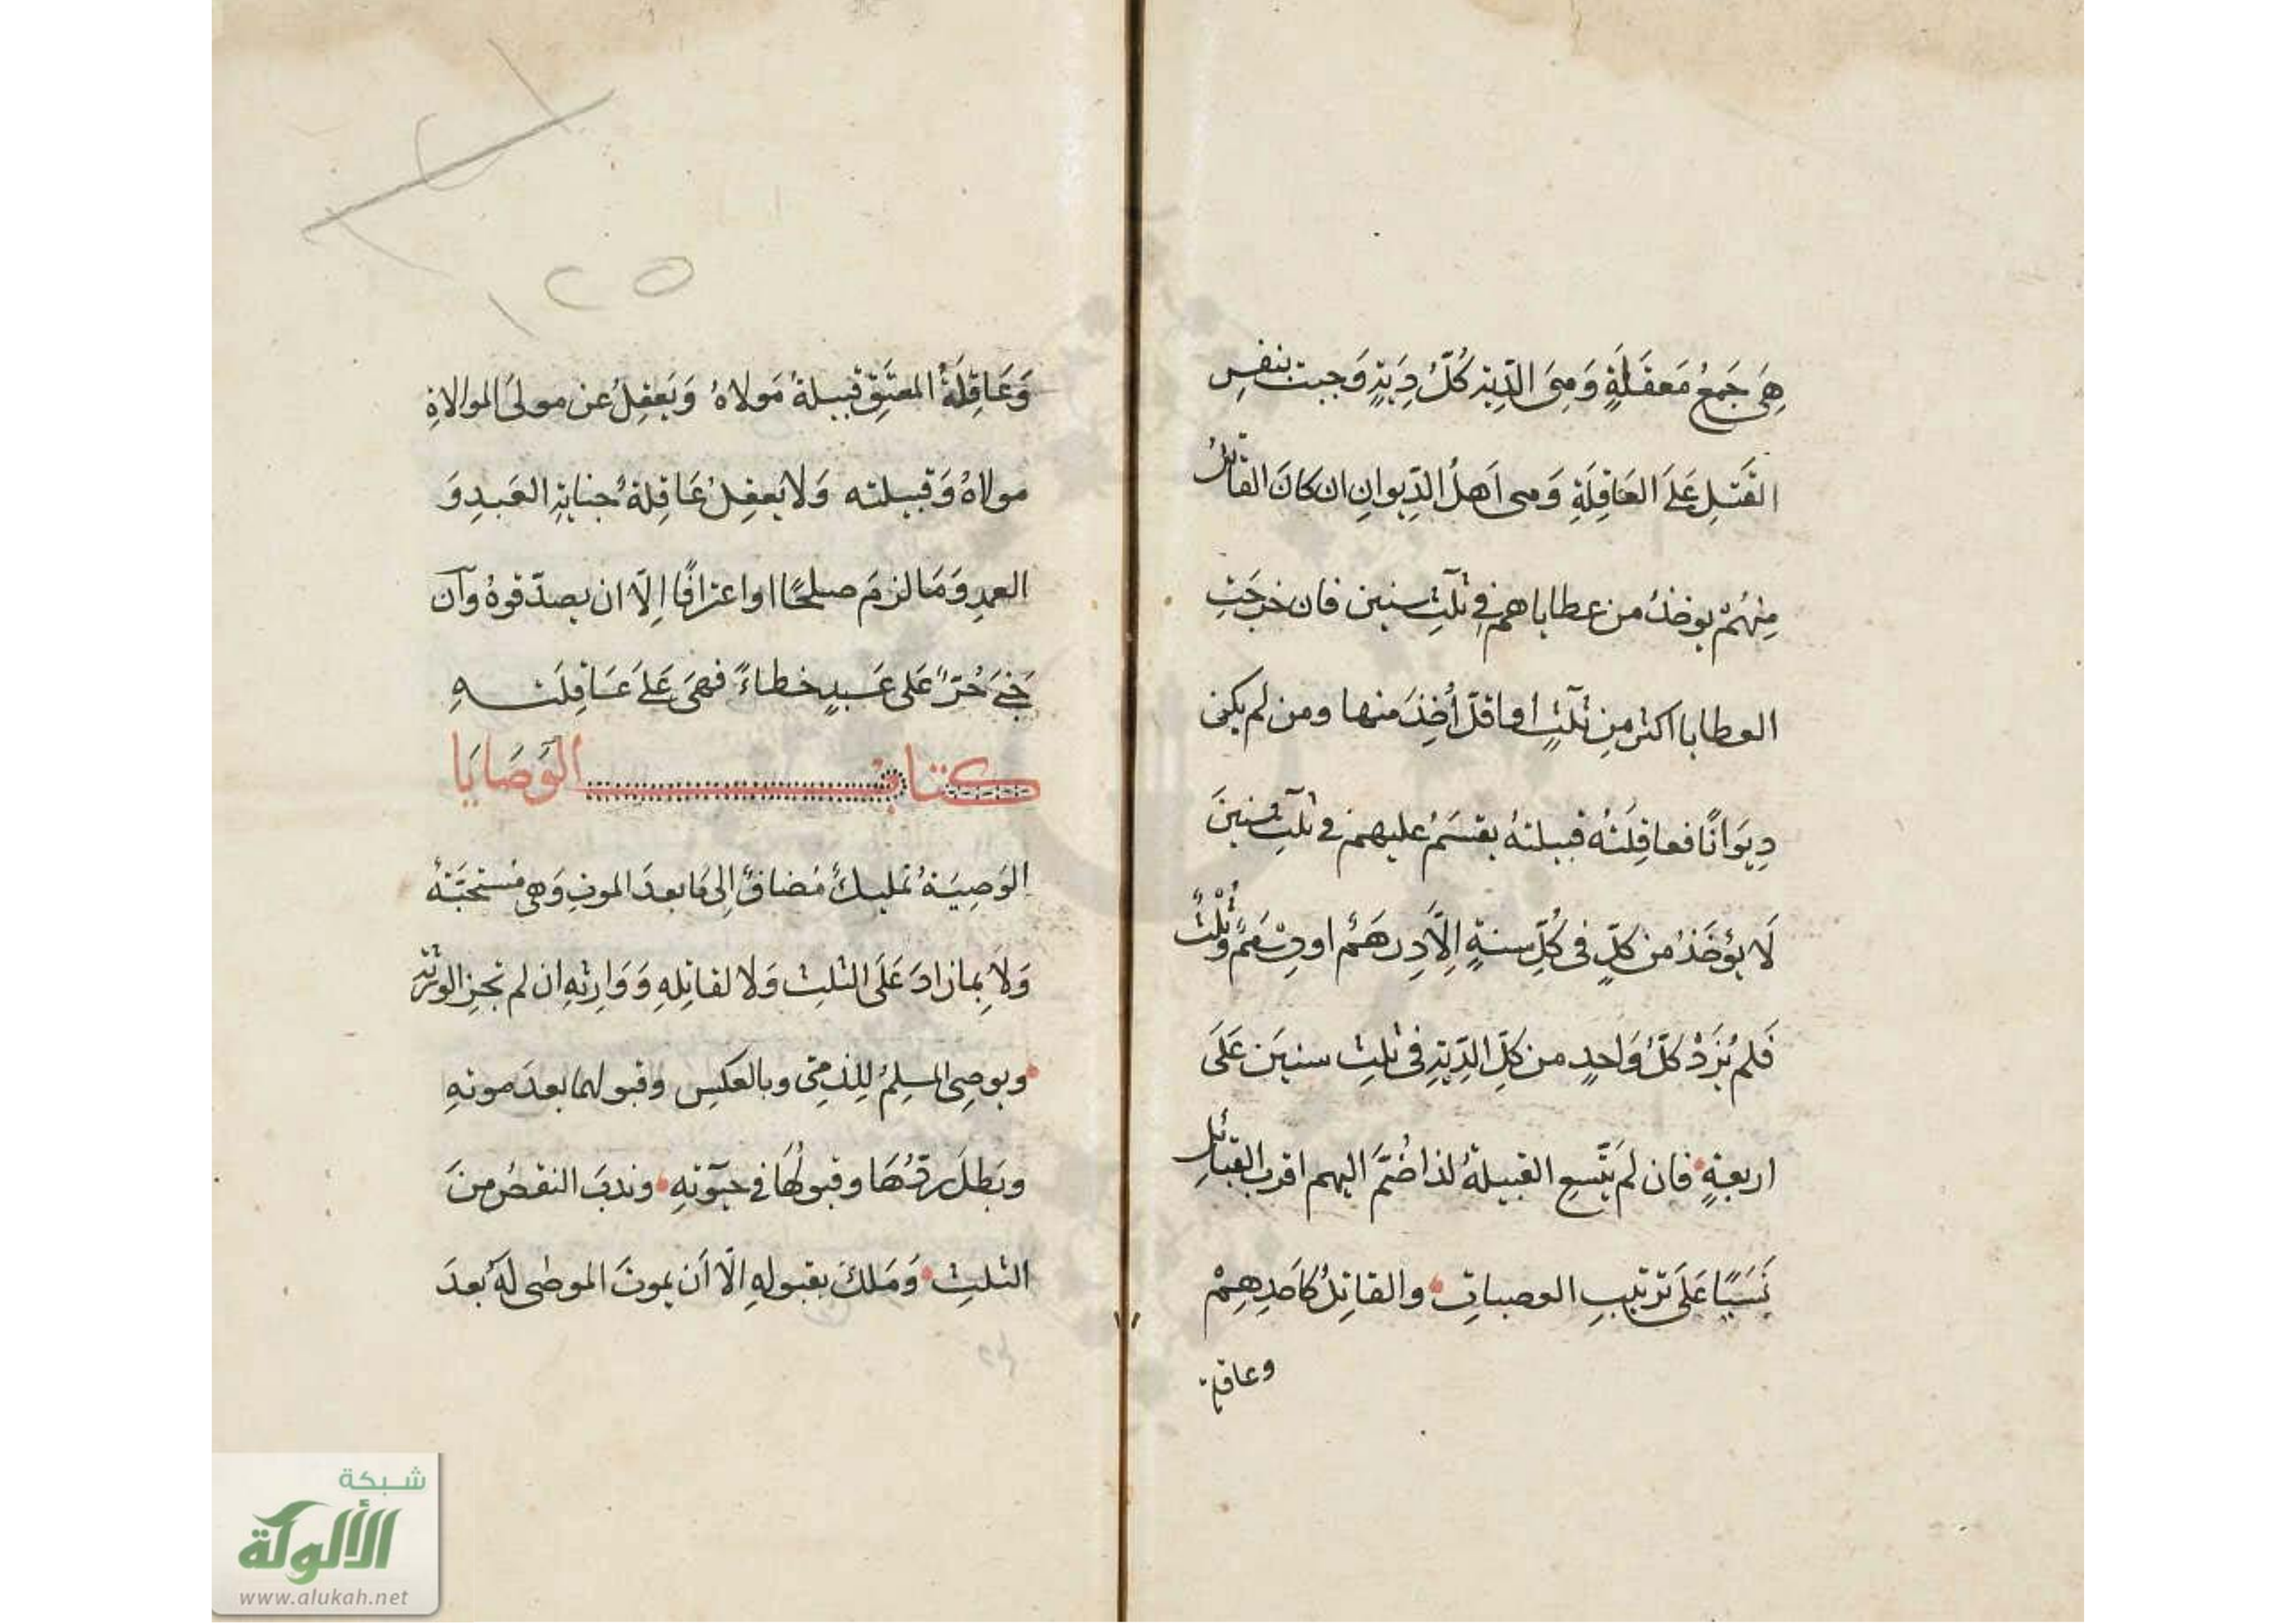 هِىَ جَمعُ مَعقَلَةٍ وَهِىَ الدِّيَة كُلُّ دِيَةٍ وَجبت بنفسِ
القَتلِ عَلَى العَاقِلَةِ وَهى اَهلُ الدِّيوانِ ان كانَ القاتلُ
مِنهُمْ يوخذُ من عطاياهم فِى ثلٰثِ سنين فان خرجَتِ
العطايا اكثر مِن ثلٰثٍ او اقلّ أُخِذَ منها ومن لم يكن
دِيوَانًا فعاقِلَتُه قبيلتهُ يقسَمُ عليهم فى ثلٰثِ سنينَ
لَا يؤخَذُ من كلٍّ فى كُلِّ سنةٍ اِلَّا دِرهَمٌ او دِرْهَمٌ وثُلْثٌ
فَلم يُزَدْ كلُّ وَاحدٍ من كلِّ الدِّيَةِ فى ثلٰثِ سنينَ عَلَى
اربعةٍ فان لم يَتَّسعِ القبيلةُ لذا ضُمَّ اليهم اقربُ القبائلِ
نَسَبًا عَلَى ترتيبِ العصباتِ والقاتِلُ كاَحَدِهِمْ
وعاقلة
١٢٥
وَعَاقِلَةُ المعتَقِ قبيلةُ مَولاهُ وَيَعقِلُ عن مولَى الموالاةِ
مولاهُ وَقبيلته وَلا يَعقِلُ عَاقِلةٌ جنايةَ العَبدِ وَ
العمدِ وَمَا لزمَ صلحًا او اعترافًا اِلَّا ان يصدّقوهُ وَان
جَنَى حُرٌّ عَلى عَبدٍ خطاءً فهىَ عَلَى عَاقِلَتهِ
كتاب الوَصَايَا
الوَصِيّةُ تمليكٌ مُضافٌ اِلى مَا بعدَ الموتِ وَهى مُستحَبّةٌ
وَلا بِمَا زادَ عَلَى الثلثِ وَلا لقاتِلِهِ وَوَارِثهِ ان لم تجزِ الورثة
ويوصِى المسلِمُ لِلذمّىِ وبالعكسِ وقبولها بعدَ موتهِ
وبَطلَ ردُّهَا وقبولُهَا فى حيٰوتهِ وندبَ النقصُ منَ
الثلثِ وَمَلكَ بقبولهِ اِلّا اَن يموتَ الموصٰى لَهُ بعدَ
شبكة
الألوكة
www.alukah.net